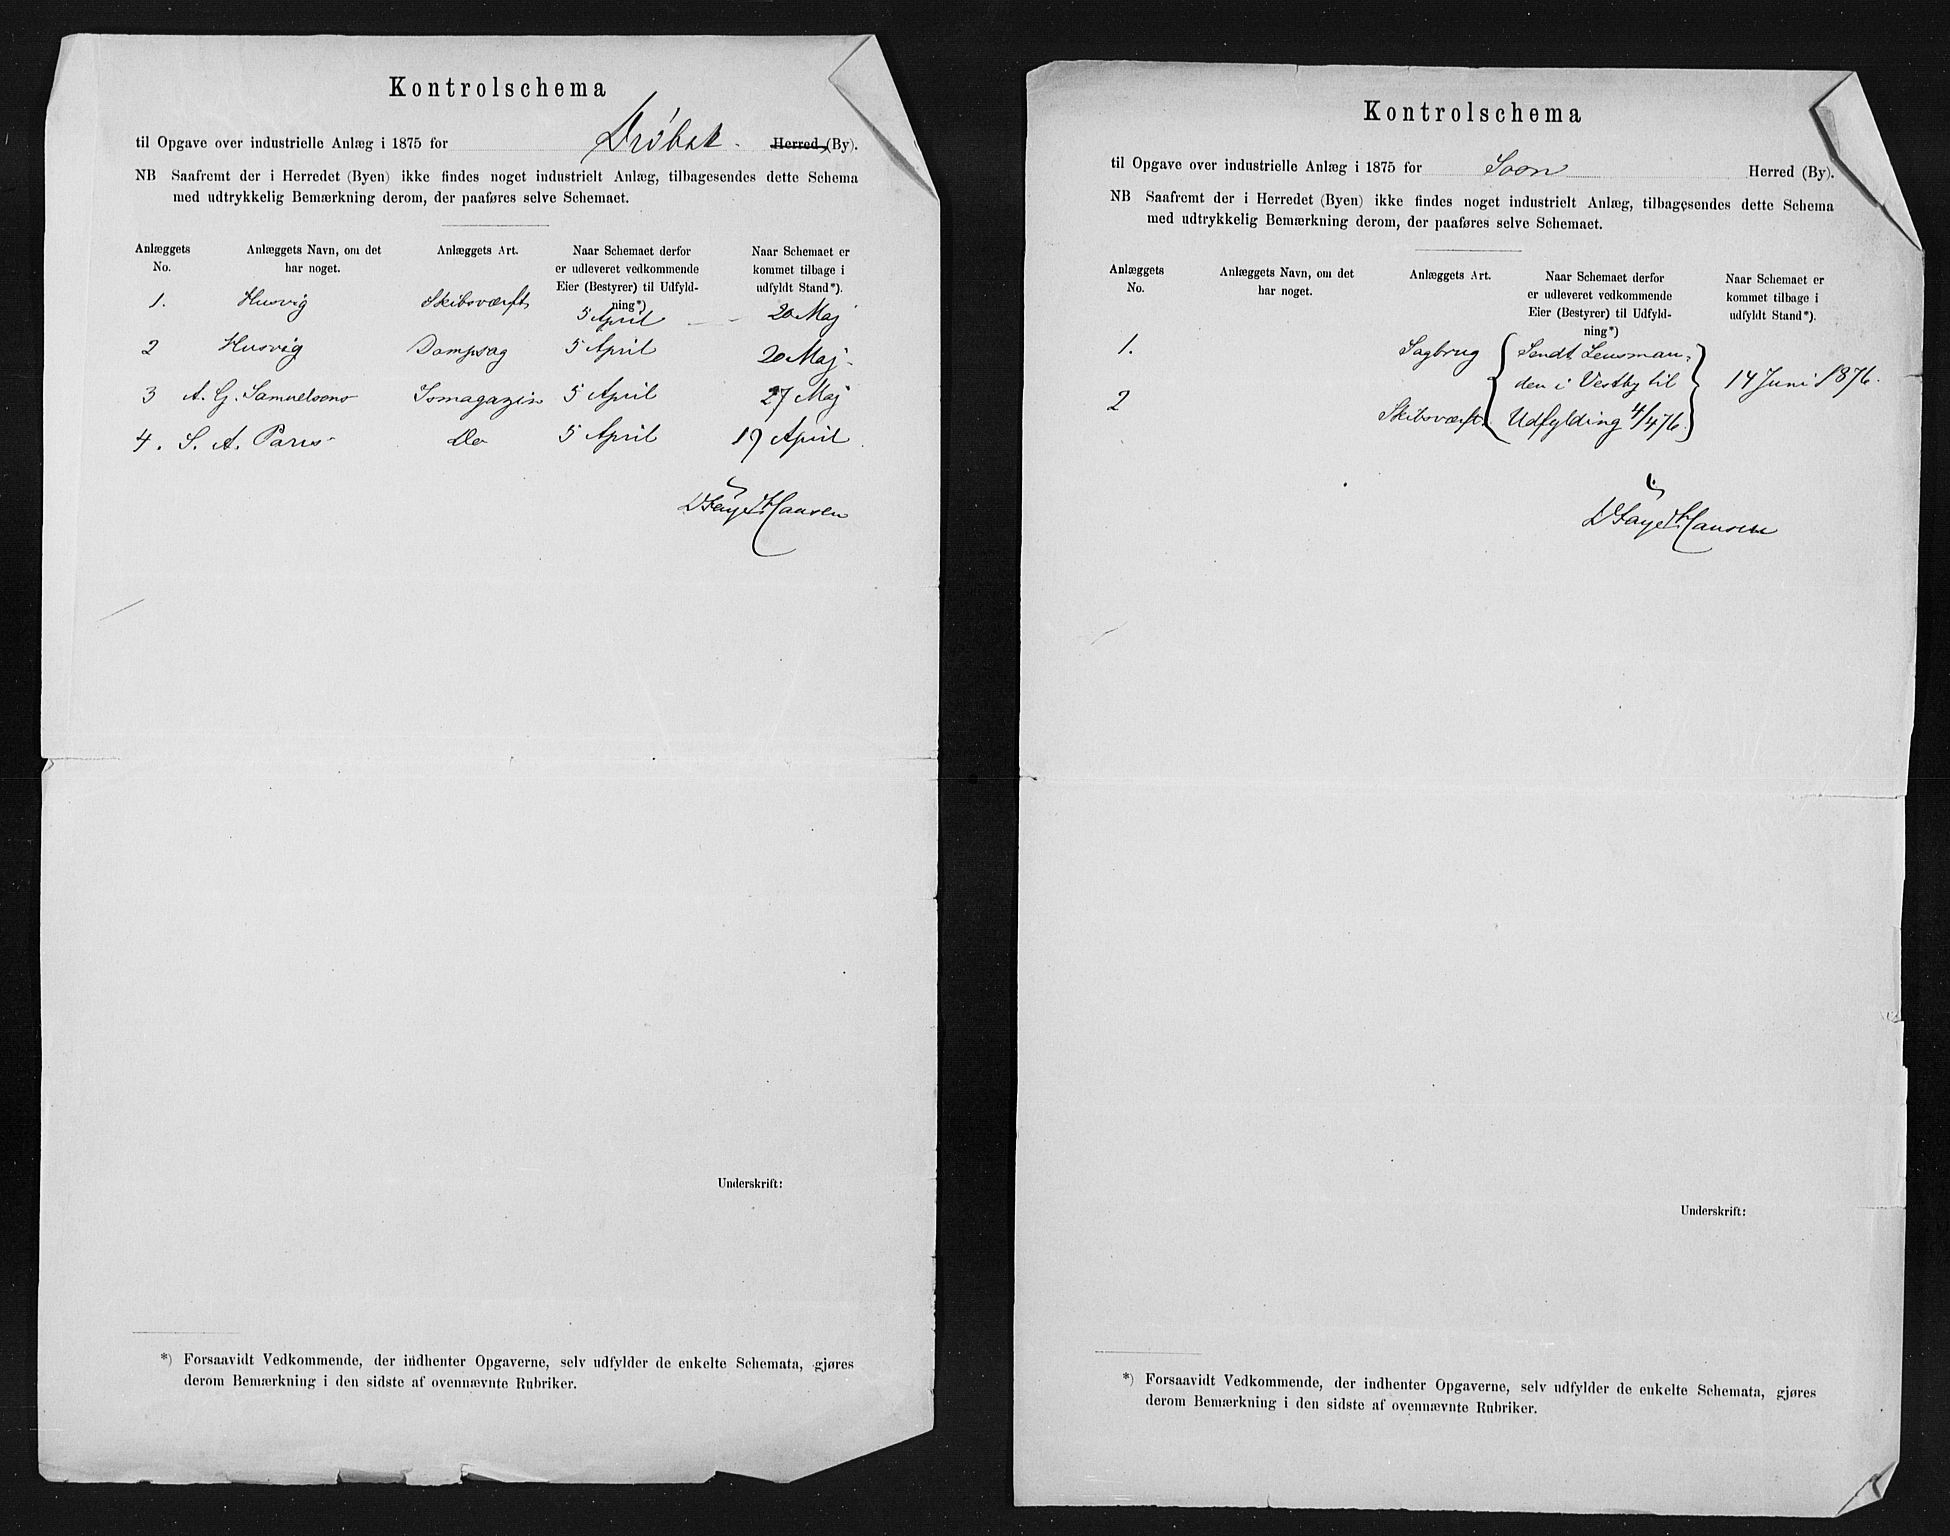 Kontrolschema
til Opgave over industrielle Anlæg i 1875 for Drøbak. Herred (By).
NB Saafremt der i Herredet (Byen) ikke findes noget industrielt Anlæg, tilbagesendes dette Schema
med udtrykkelig Bemærkning derom, der paaføres selve Schemaet.
Anlæggets No. Anlæggets Navn, om det har noget. Anlæggets Art. Naar Schemaet derfor er udleveret vedkommende Eier (Bestyrer) til Udfyldning*) Naar Schemaet er kommet tilbage i udfyldt Stand*).
1. Husvig Skibsværft 5 April 20 Maj
2 Husvig Dampsag 5 April 20 Maj
3 A. G. Samuelsens Ismagazin 5 April 27 Maj
4. S. A. Parrs Do 5 April 19 April
Faye Hansen
Underskrift:
*) Forsaavidt Vedkommende, der indhenter Opgaverne, selv udfylder de enkelte Schemata, gjøres
derom Bemærkning i den sidste af ovennævnte Rubriker.
Kontrolschema
til Opgave over industrielle Anlæg i 1875 for Soon Herred (By).
NB Saafremt der i Herredet (Byen) ikke findes noget industrielt Anlæg, tilbagesendes dette Schema
med udtrykkelig Bemærkning derom, der paaføres selve Schemaet.
Anlæggets No. Anlæggets Navn, om det har noget. Anlæggets Art. Naar Schemaet derfor er udleveret vedkommende Eier (Bestyrer) til Udfyldning*) Naar Schemaet er kommet tilbage i udfyldt Stand*).
1. Sagbrug Sendt Lensman-
den i Vestby til 14 Juni 1876.
2 Skibsværft Udfylding 4/4 76.
Faye Hansen
Underskrift:
*) Forsaavidt Vedkommende, der indhenter Opgaverne, selv udfylder de enkelte Schemata, gjøres
derom Bemærkning i den sidste af ovennævnte Rubriker.